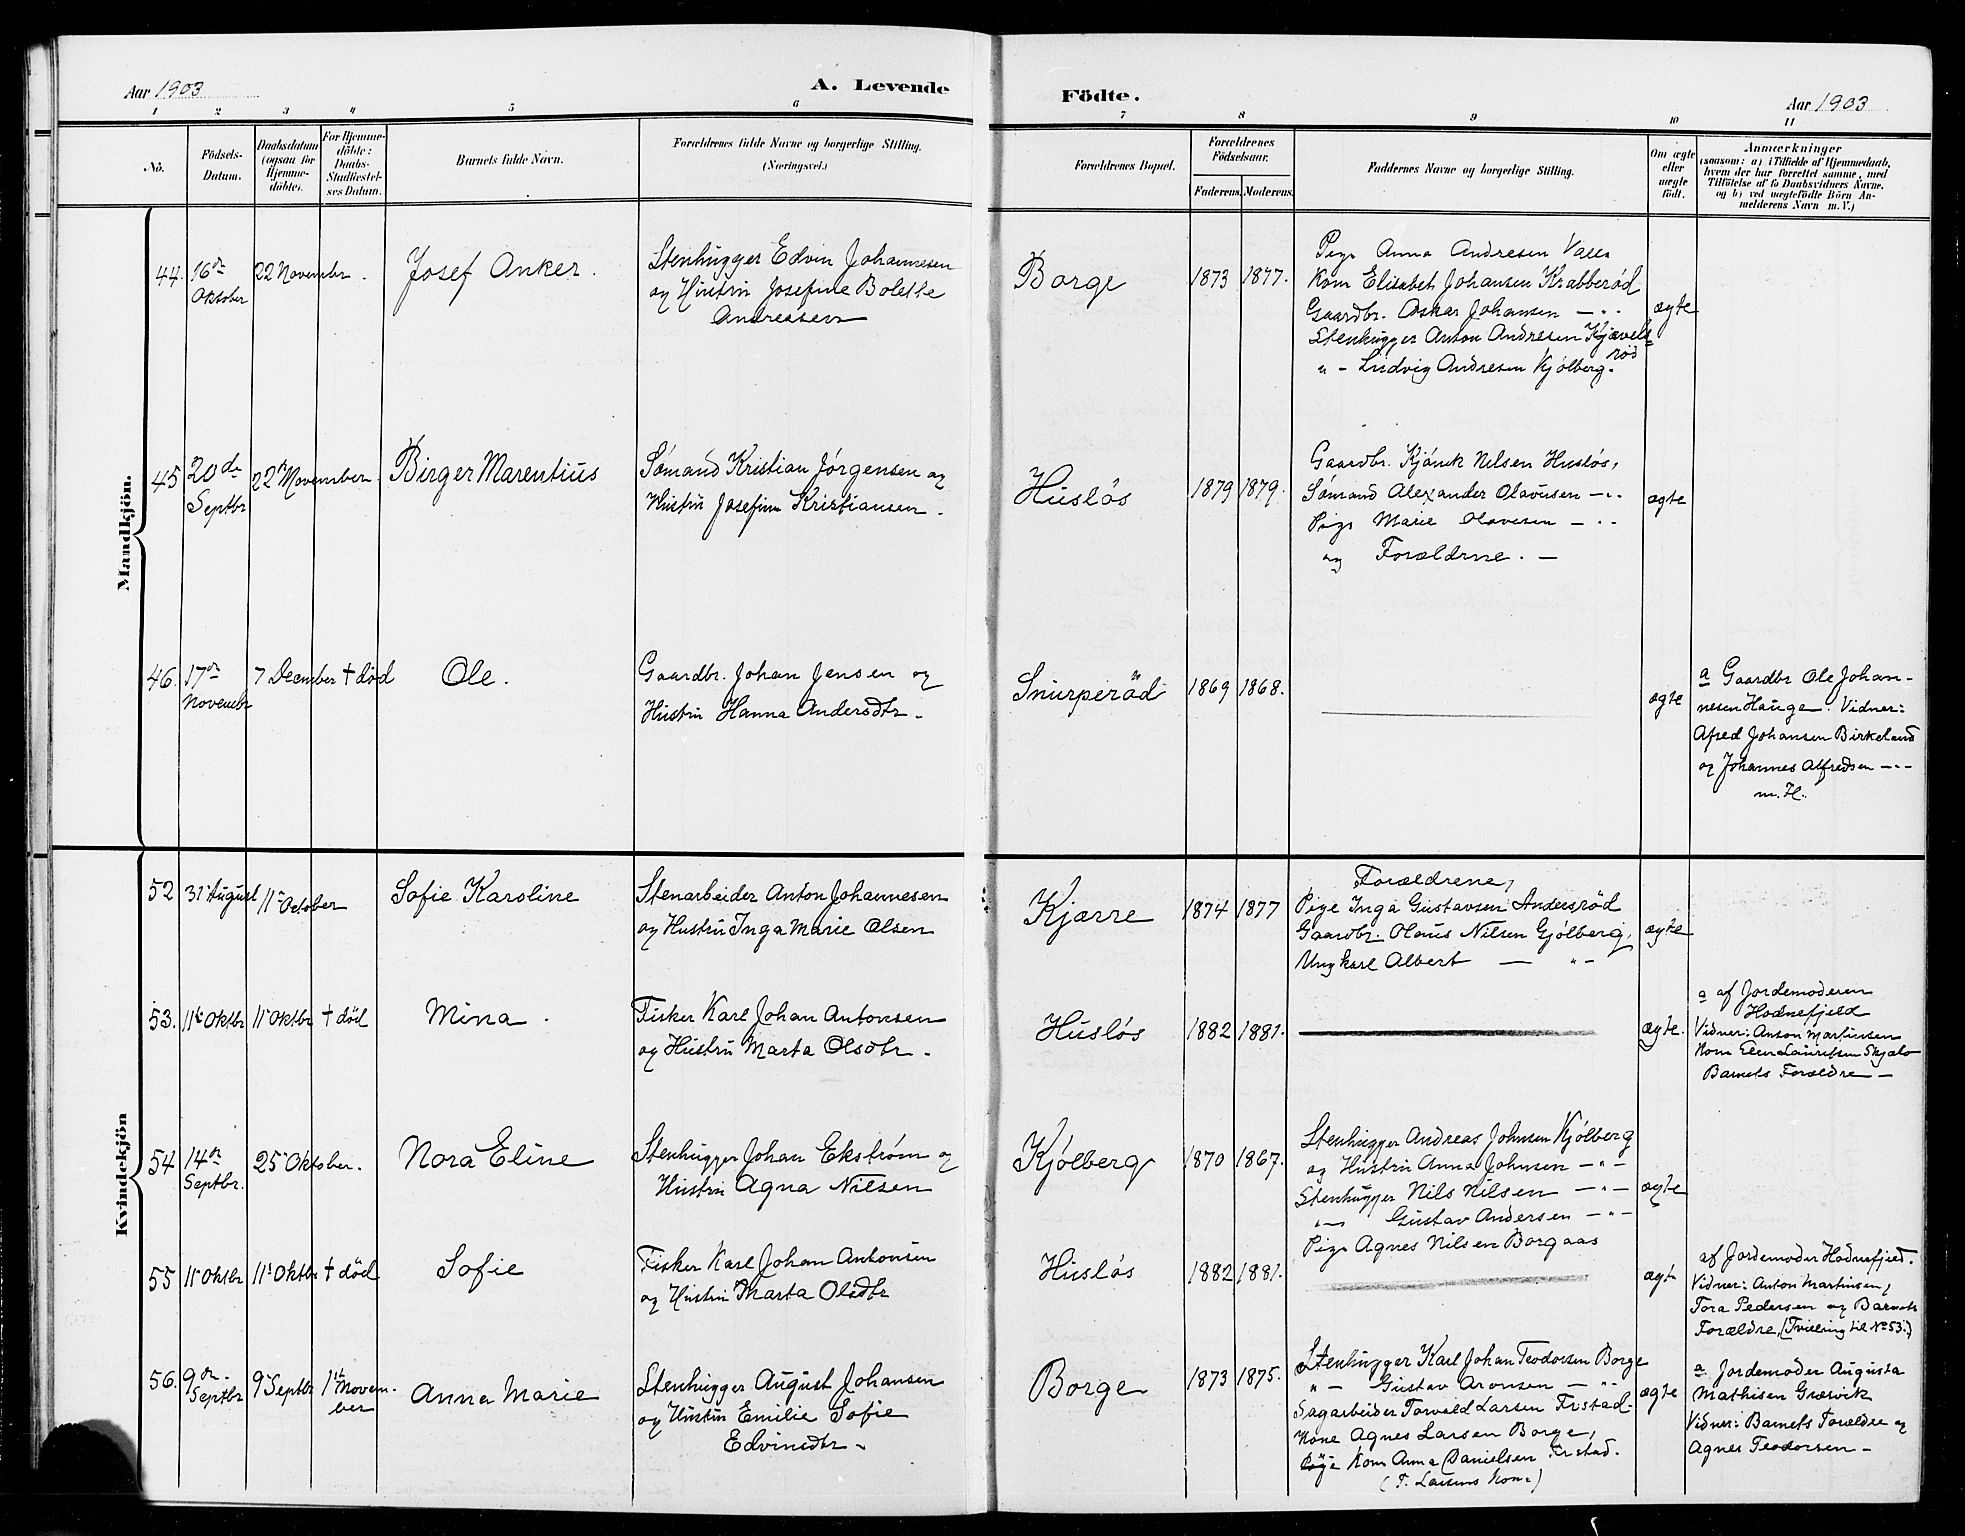 Aar 1903
A. Levende
Födte.
Aar 1903
1 2 3 4 5 6 7 8 9 10 11
Nö.
Födsels-
Datum.
Daabsdatum
(ogsaa for
Hjemme-
döbte).
For Hjemme-
döbte:
Daabs-
Stadfæstel-
ses Datum.
Barnets fulde Navn.
Forældrenes fulde Navne og borgerlige Stilling.
(Næringsvei.)
Forældrenes Bopæl.
Forældrenes
Födselsaar.
Faderens. Moderens.
Faddernes Navne og borgerlige Stilling.
Om ægte
eller
uægte
födt.
Anmærkninger
(saasom: a) i Tilfælde af Hjemmedaab,
hvem der har forrettet samme, med
Tilföielse af to Daabsvidners Navne.
og b) ved uægtefödte Börn An-
melderens Navn m. V.)
Mandkjön.
44.
16de
Oktober
22 November.
Josef Anker.
Stenhugger Edvin Johannesen
og Hustru Josefine Bolette
Andreasen
Borge
1873 1877.
Pige Anna Andresen
Kone Elisabet Johansen Krabberød
Gaardbr. Oskar Johansen — " -
Stenhugger Anton Andresen Kjævels-
rød
" - Ludvig Andresen Kjølberg.
ægte
45
20de
Septbr
22 November.
Birger Marentius
Sømand Kristian Jørgensen og
Hustru Josefine Kristiansen.
Husløs
1879 1879.
Gaardbr. Nilsen Husløs,
Sømand Alexander Olavesen — " -
Pige Marie Olavesen — " -
og Forældrene. —
ægte
46.
17de
Novembr
7 December † död
Ole.
Gaardbr. Johan Jensen og
Hustru Hanna Andersdtr.
Snurperöd
1869 1868.
ægte
a Gaardbr Ole Johan-
nesen Hauge. Vidner:
Alfred Johansen Birkeland
og Johannes Alfredsen — " —
m. H.
Kvindekjön
52
31 August
11 October
Sofie Karoline
Stenarbeider Anton Johannesen
og Hustru Inga Marie Olsen
Kjærre
1874 1877
Forældrene,
Pige Inga Gustavsen Andersrød
Gaardbr. Olaus Nilsen Gjølberg,
Ungkarl Albert — " -
ægte
53.
11te Oktbr
11 Oktbr † död
Mina.
Fisker Karl Johan Antonsen
og Hustru Marta Olsdtr.
Husløs
1882 1881.
ægte.
a af Jordemoderen
Hodnefjeld
Vidner: Anton Martinsen
Kone Elen Lauritsen
Barnets Forældre —
54
14de
Septbr.
25 Oktober.
Nora Eline
Stenhugger Johan Ekstrøm og
Hustru Agna Nilsen
Kjølberg
1870 1867.
Stenhugger Andreas Johnsen Kjølberg
og Hustru Anna Johnsen — " —
Stenhugger Nils Nilsen — " —
" — Gustav Andersen — " —
Pige Agnes Nilsen Borgaas
ægte
55
11 Oktbr
11 Oktbr † död
Sofie
Fisker Karl Johan Antonsen
og Hustru Marta Olsdtr
Husløs
1882 1881.
ægte
af Jordemoder Hodnefjeld.
Vidner: Anton Martinsen,
Tora Pedersen og Barnets
Forældre. (Tvilling til No 53.)
56.
9de
Septbr
9 Septbr
1ste Novem-
ber
Anna Marie
Stenhugger August Johansen
og Hustru Emilie Sofie
Edvinsdtr.
Borge
1873 1875.
Stenhugger Karl Johan Teodorsen Borge
" - Gustav Aronsen — " -
Sagarbeider Torvald Larsen
Kone Agnes Larsen Borge,
Pige Kone Anna Danielsen
(T. Larsens Kone)
ægte
a Jordemoder Augusta
Mathisen Græsvik
Vidner: Barnets Forældre og
Agnes Teodorsen —